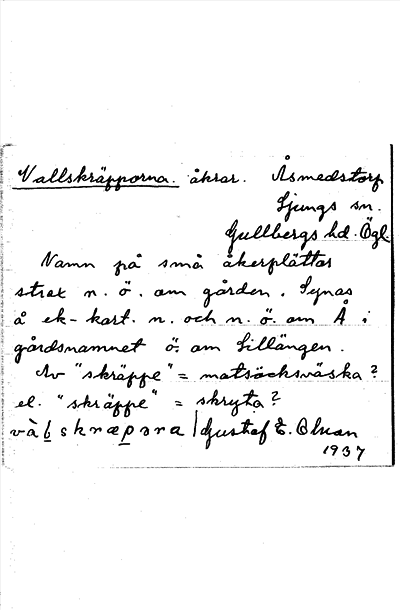 Vallskräpporna. åkrar. Åsmedstorp
Ljungs sn.
Gullbergs hd. Ögl
Namn på små åkerplättar
strax n. ö. om gården. Synas
å ek-kart. n. och n. ö. om Å i
gårdsnamnet ö. om Lillängen.
Av "skräppe" = matsäcksväska?
el. "skräppe" = skryta?
và l skræpəra / Gustaf E. Olsson
1937